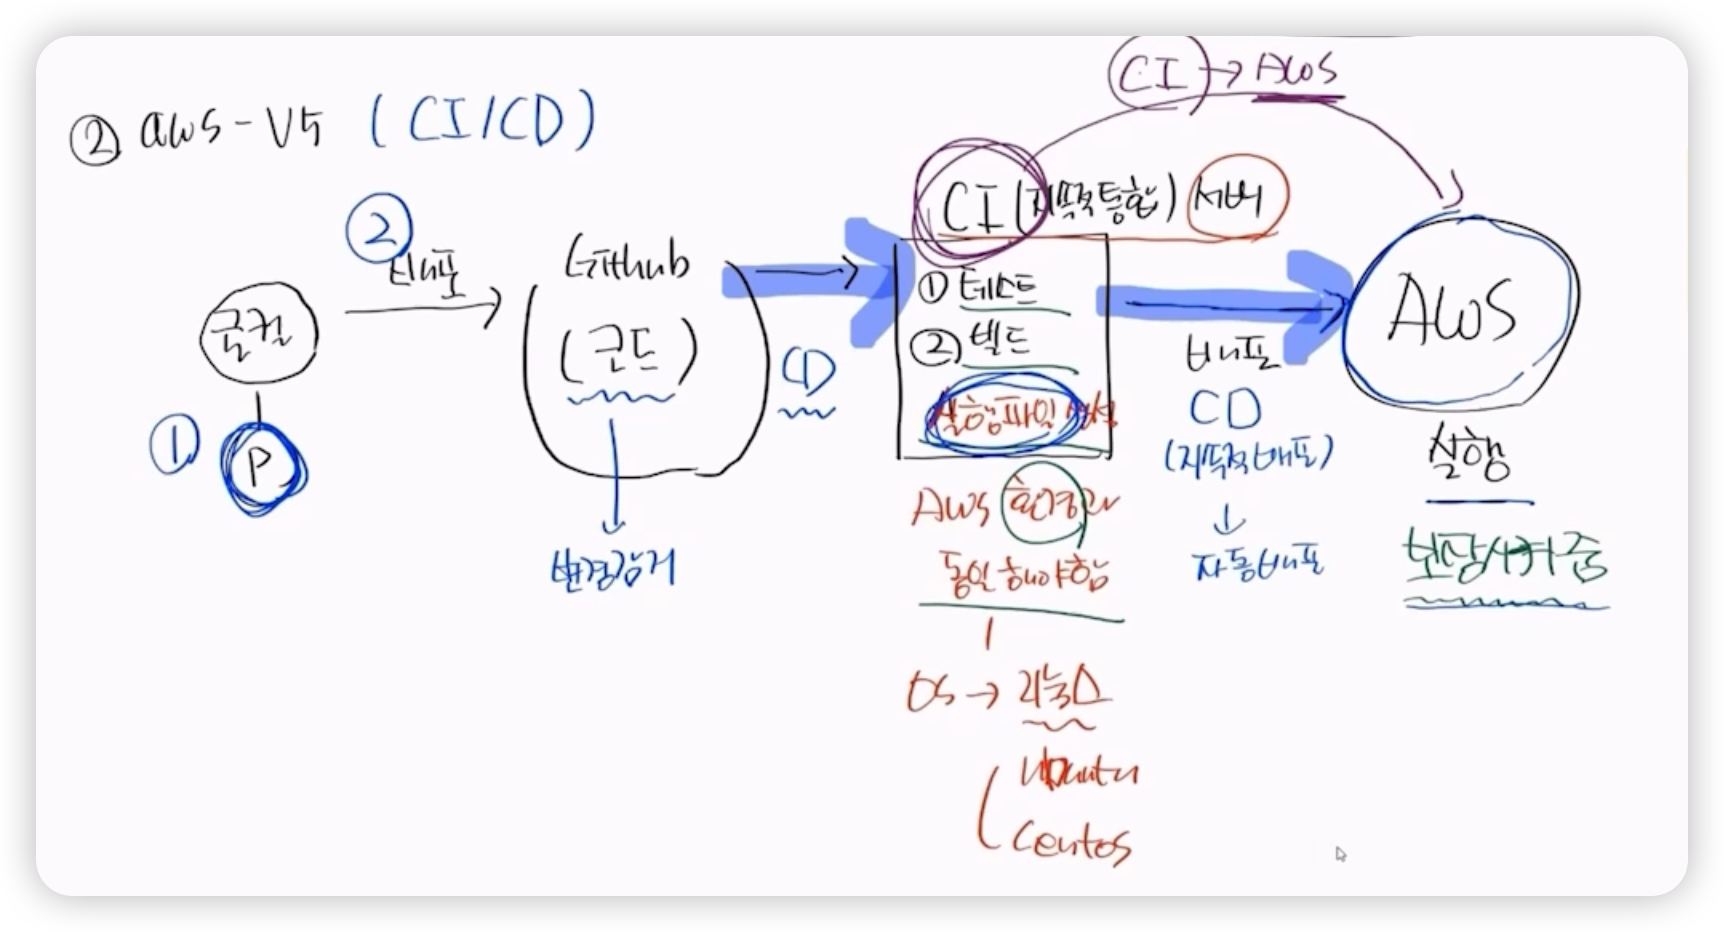 ② aws-V5 (CI/CD)
CI → AWS
②
배포
로컬
①
P
Github
(코드)
변경감지
CD
CI (지속적통합) 서버
① 테스트
② 빌드
실행파일 생성
AWS 환경과
동일해야함
OS → 리눅스
Ubuntu
Centos
배포
CD
(지속적배포)
↓
자동배포
AWS
실행
보장시켜줌